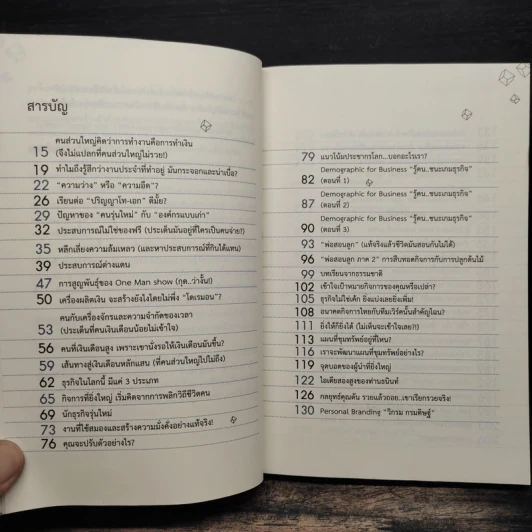 สารบัญ
คนส่วนใหญ่คิดว่าการทำงานคือการทำเงิน
15 (จึงไม่แปลกที่คนส่วนใหญ่ไม่รวย!)
19 ทำไมถึงรู้สึกว่างานประจำที่ทำอยู่ มันกระจอกและน่าเบื่อ?
22 “ความว่าง” หรือ “ความอึด”?
26 เรียนต่อ “ปริญญาโท-เอก” ดีมั้ย?
29 ปัญหาของ “คนรุ่นใหม่” กับ “องค์กรแบบเก่า”
32 ประสบการณ์ไม่ใช่ของฟรี (ประเด็นมันอยู่ที่ใครเป็นคนจ่าย?)
35 หลีกเลี่ยงความล้มเหลว (และหาประสบการณ์ที่กินได้แทน)
39 ประสบการณ์ต่างแดน
47 การสูญพันธุ์ของ One Man show (กุด..ว่างั้น!)
50 เครื่องผลิตเงิน จะสร้างยังไงโดยไม่พึ่ง “โดเรมอน”?
คนกับเครื่องจักรและความจำกัดของเวลา
53 (ประเด็นที่คนเงินเดือนน้อยไม่เข้าใจ)
56 คนที่เงินเดือนสูง เพราะเขานั่งรอให้เงินเดือนมันขึ้น?
59 เส้นทางสู่เงินเดือนหลักแสน (ที่คนส่วนใหญ่ไปไม่ถึง)
62 ธุรกิจในโลกนี้ มีแค่ 3 ประเภท
65 กิจการที่ยิ่งใหญ่ เริ่มคิดจากการพลิกวิถีชีวิตคน
69 นักธุรกิจรุ่นใหม่
73 งานที่ใช้สมองและสร้างความมั่งคั่งอย่างแท้จริง!
76 คุณจะปรับตัวอย่างไร?
79 แนวโน้มประชากรโลก...บอกอะไรเรา?
Demographic for Business “รู้คน..ชนะเกมธุรกิจ”
82 (ตอนที่ 1)
Demographic for Business “รู้คน..ชนะเกมธุรกิจ”
87 (ตอนที่ 2)
Demographic for Business “รู้คน..ชนะเกมธุรกิจ”
90 (ตอนที่ 3)
93 “พ่อสอนลูก” (แท้จริงแล้วชีวิตมันสอนกันไม่ได้)
96 “พ่อสอนลูก ภาค 2” การสืบทอดกิจการกับการปลูกต้นไม้
99 บทเรียนจากธรรมชาติ
102 เข้าใจเป้าหมายกิจการของคุณหรือเปล่า?
105 ธุรกิจไม่ใช่เค้ก ยิ่งแบ่งเลยยิ่งเพิ่ม!
108 อนาคตกิจการไทยกับทีมเวิร์คนั้นสำคัญไฉน?
111 ยิ่งให้ก็ยิ่งได้ (ไม่เห็นจะเข้าใจเลย?!)
113 แผนที่ขุมทรัพย์อยู่ที่ไหน?
116 เราจะพัฒนาแผนที่ขุมทรัพย์อย่างไร?
119 จุดบอดของผู้นำที่ยิ่งใหญ่
122 ไอเดียสองสูงของท่านธนินท์
126 กลยุทธ์คุณตัน รวยแล้วถอย...เขาเรียกรวยจริง!
130 Personal Branding “วิกรม กรมดิษฐ์”